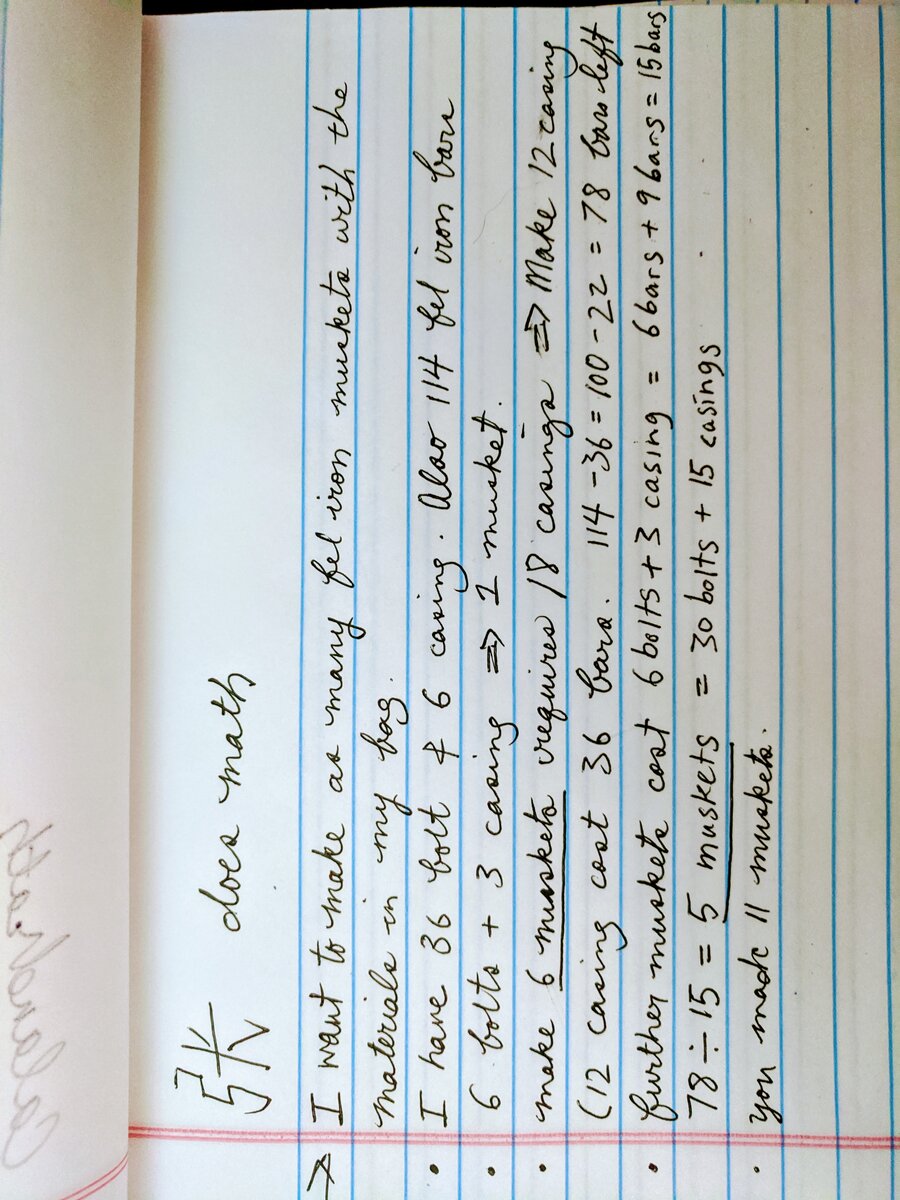 张 does math
→ I want to make as many fel iron muskets with the
materials in my bag.
• I have 36 bolt & 6 casing. Also 114 fel iron bars
• 6 bolts + 3 casing ⇒ 1 musket.
• make 6 muskets requires 18 casings ⇒ Make 12 casing
(12 casing cost 36 bars. 114 - 36 = 100 - 22 = 78 bars left
• further muskets cost 6 bolts + 3 casing = 6 bars + 9 bars = 15 bars
78 ÷ 15 = 5 muskets = 30 bolts + 15 casings
• you made 11 muskets.